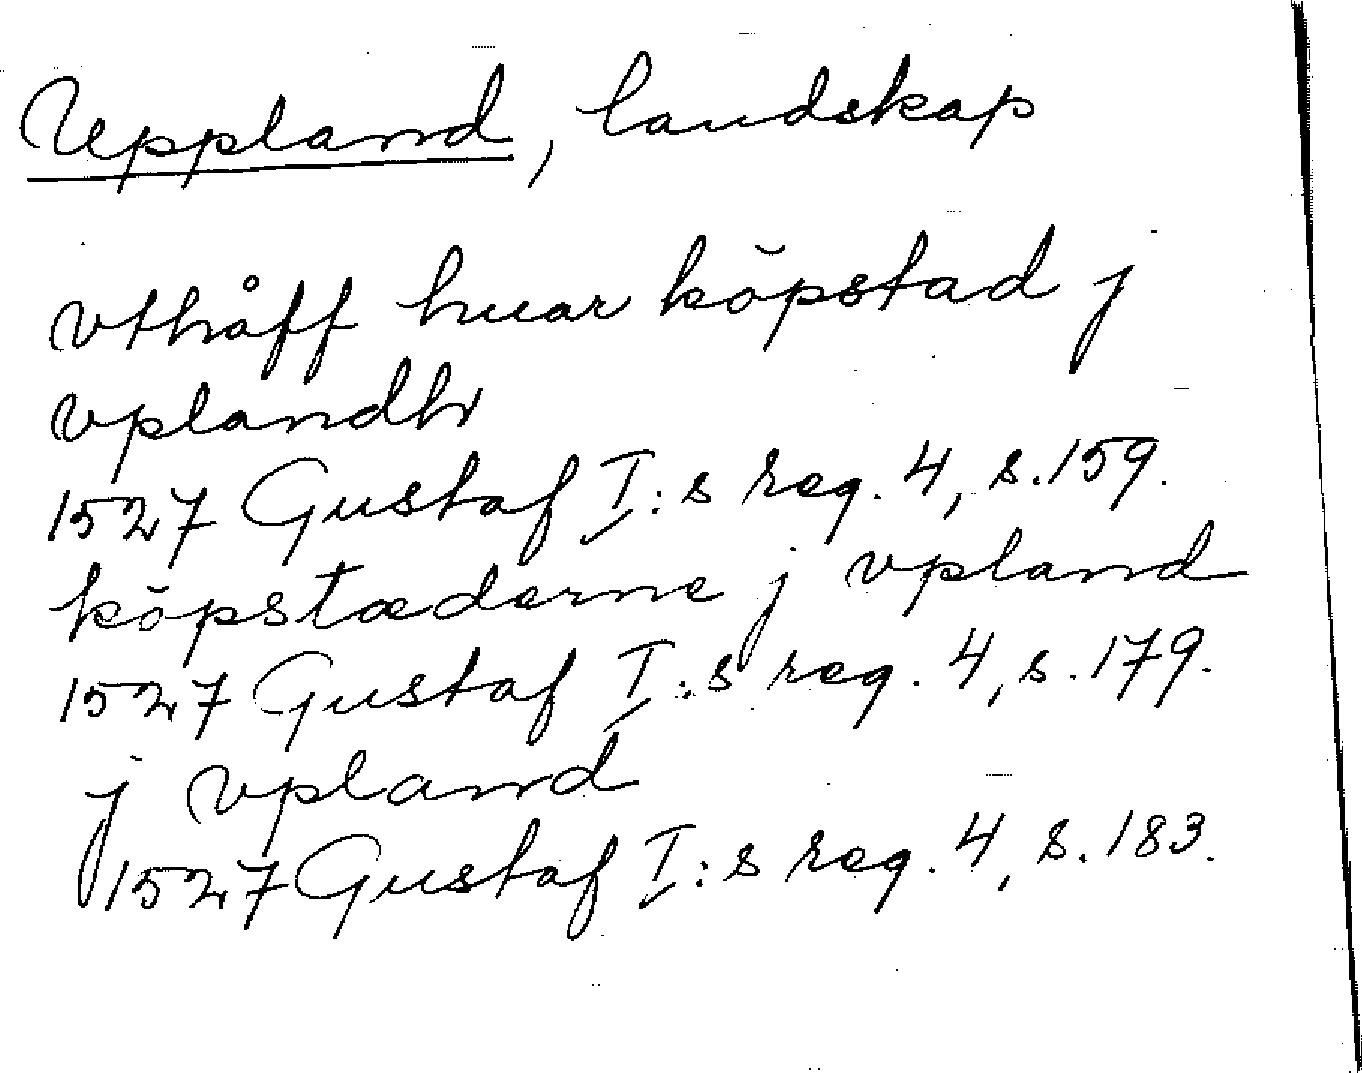 Uppland, landskap
vthåff huar köpstad j
vplandh
1527 Gustaf I:s reg. 4, s. 159.
köpstæderne j vpland
1527 Gustaf I:s reg. 4, s. 179.
j vpland
1527 Gustaf I:s reg. 4, s. 183.